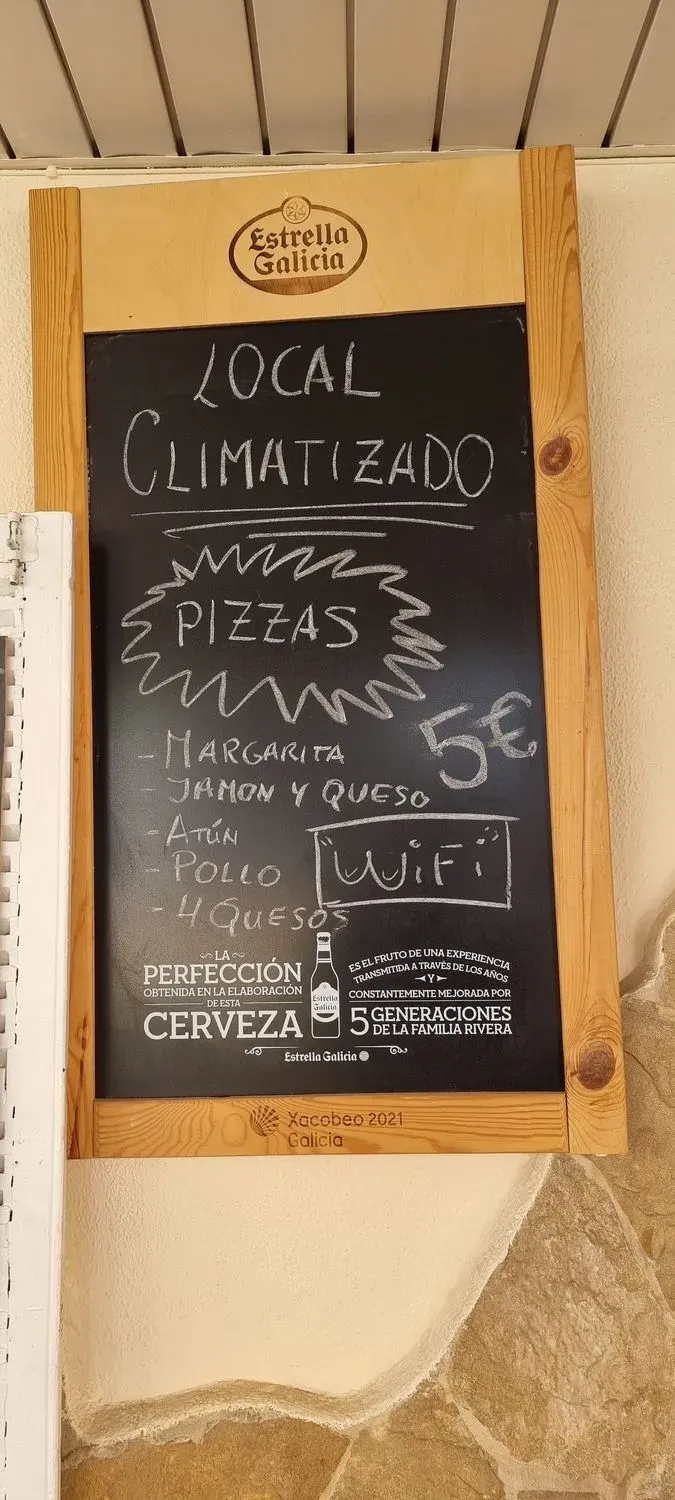 Estrella
Galicia
LOCAL
CLIMATIZADO
PIZZAS
5€
- MARGARITA
- JAMON Y QUESO
- ATÚN
- POLLO
- 4 QUESOS
"WiFi"
LA
PERFECCIÓN
OBTENIDA EN LA ELABORACIÓN
DE ESTA
CERVEZA
Estrella
Galicia
ES EL FRUTO DE UNA EXPERIENCIA
TRANSMITIDA A TRAVÉS DE LOS AÑOS
Y
CONSTANTEMENTE MEJORADA POR
5 GENERACIONES
DE LA FAMILIA RIVERA
Estrella Galicia
Xacobeo 2021
Galicia